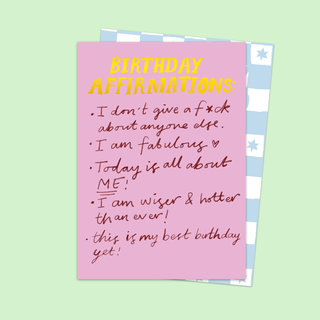 BIRTHDAY
AFFIRMATIONS:
• I don't give a f*ck
about anyone else.
• I am fabulous
• Today is all about
ME!
• I am wiser & hotter
than ever!
• this is my best birthday
yet!